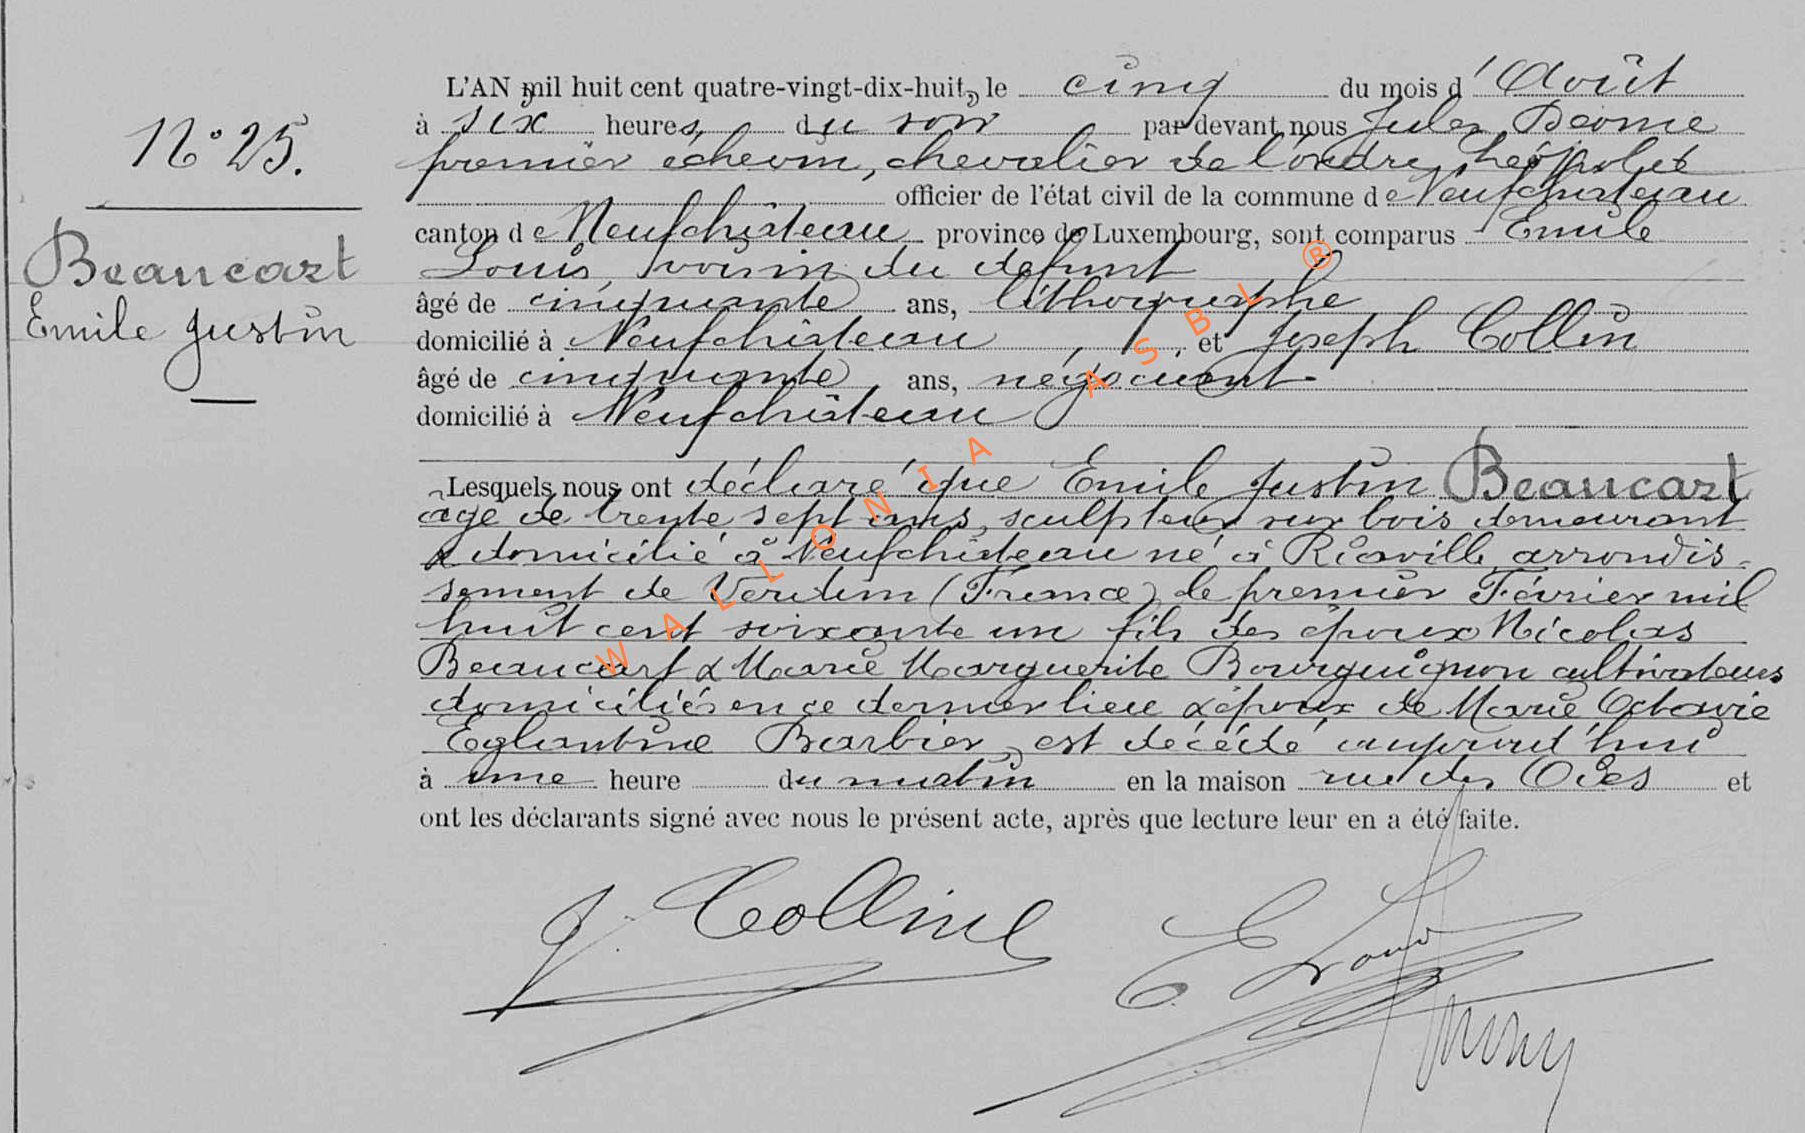 N° 25.
Beaucart
Emile Justin
L'AN mil huit cent quatre-vingt-dix-huit, le cinq du mois d'Août
à six heures, du soir par devant nous Jules
premier échevin, chevalier de l'ordre Léopold
officier de l'état civil de la commune de Neufchâteau
canton de Neufchâteau province de Luxembourg, sont comparus Emile
Louis, voisin du défunt
âgé de cinquante ans, lithographe
domicilié à Neufchâteau, et Joseph Collin
âgé de cinquante ans, négociant
domicilié à Neufchâteau
Lesquels nous ont déclaré que Emile Justin Beaucart
âgé de trente sept ans, sculpteur sur bois demeurant
& domicilié à Neufchâteau né à Riaville arrondis-
sement de Verdun (France) le premier Février mil
huit cent soixante un fils des époux Nicolas
Beaucart & Marie Marguerite Bourguignon cultivateurs
domiciliés en ce dernier lieu & époux de Marie Octavie
Eglantine Barbier, est décédé aujourd'hui
à une heure du matin en la maison rue des Oies et
ont les déclarants signé avec nous le présent acte, après que lecture leur en a été faite.
J. Colline
E Louis
WALLONIA ASBL ®